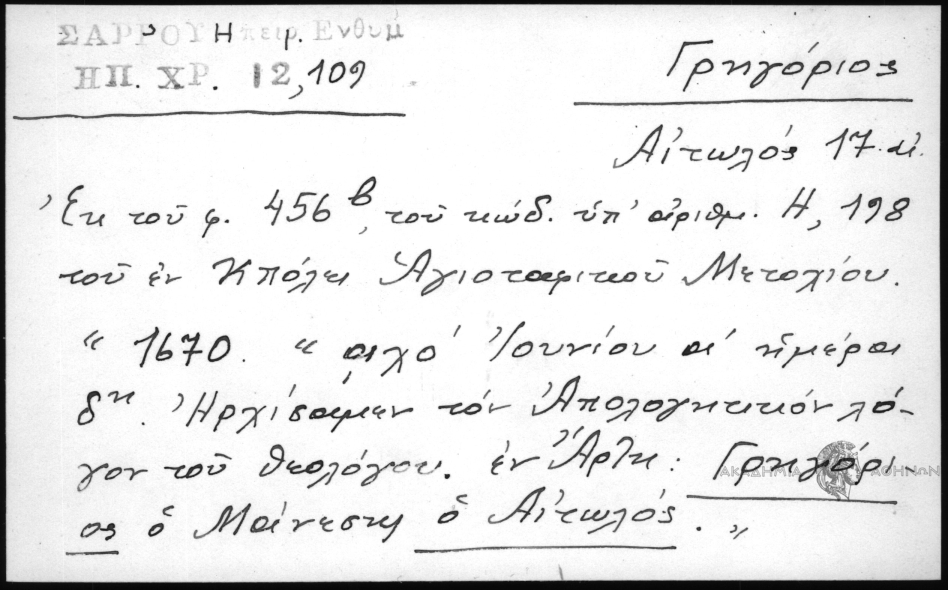 ΣΑΡΡΟΥ Ἠπειρ. Ενθυμ
ΗΠ. ΧΡ. 12, 109
Γρηγόριος
Αἰτωλός 17. αἰ.
Ἐκ τοῦ φ. 456 β, τοῦ κώδ. ὑπ' ἀριθμ. Η, 198
τοῦ ἐν Κπόλει Ἁγιοταφιτικοῦ Μετοχίου.
“ 1670. “ αχό Ἰουνίου αἱ ἡμέραι
δη. Ἠρχίσαμεν τόν Ἀπολογητικόν λό-
γον τοῦ θεολόγου. ἐν Ἄρτῃ: Γρηγόρι-
ος ὁ Μάνεσης ὁ Αἰτωλός. „
ΑΚΑΔΗΜΙΑ ΑΘΗΝΩΝ